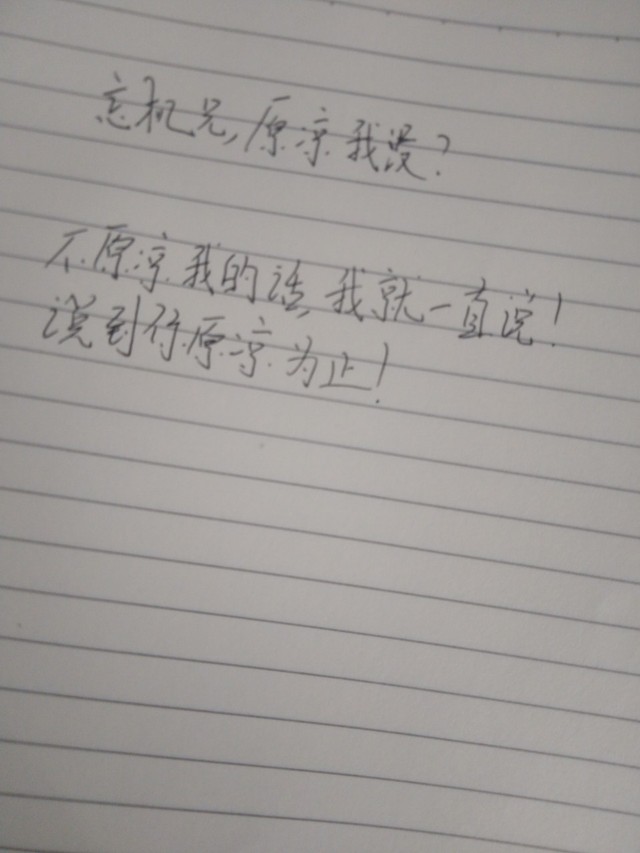 忘机兄,原凉我没?
不原凉我的话,我就一直说!
说到你原凉为止!